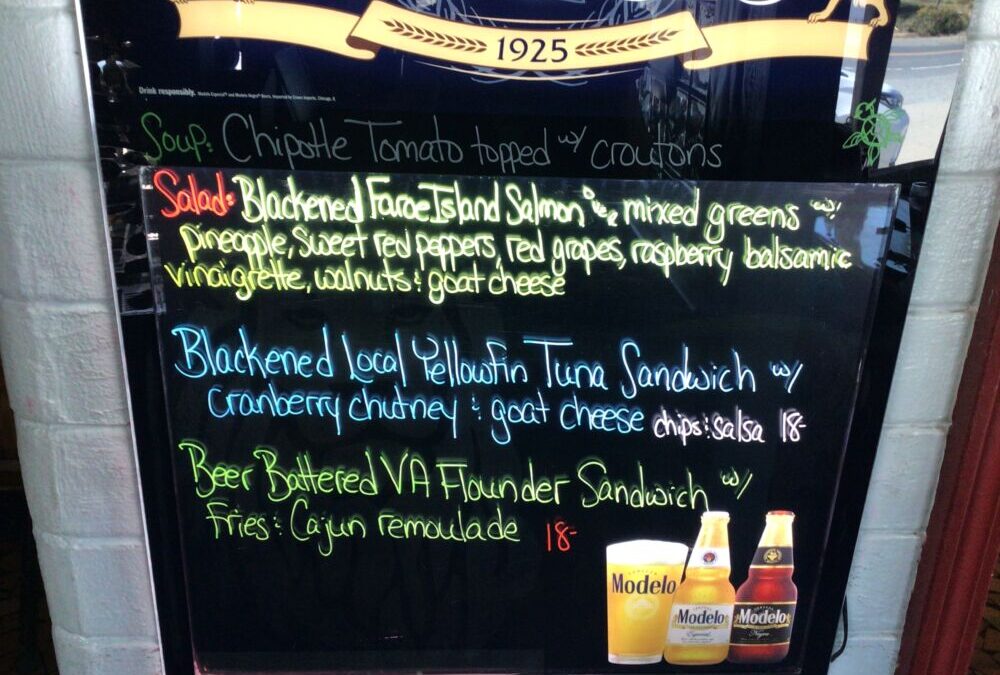 1925
Drink responsibly.
Soup: Chipotle Tomato topped w/ croutons
Salad: Blackened Faroe Island Salmon mixed greens w/
pineapple, sweet red peppers, red grapes, raspberry balsamic
vinaigrette, walnuts & goat cheese
Blackened Local Yellowfin Tuna Sandwich w/
cranberry chutney & goat cheese chips & salsa 18-
Beer Battered VA Flounder Sandwich w/
Fries & Cajun remoulade 18-
Modelo
Modelo
Especial
Modelo
Negra